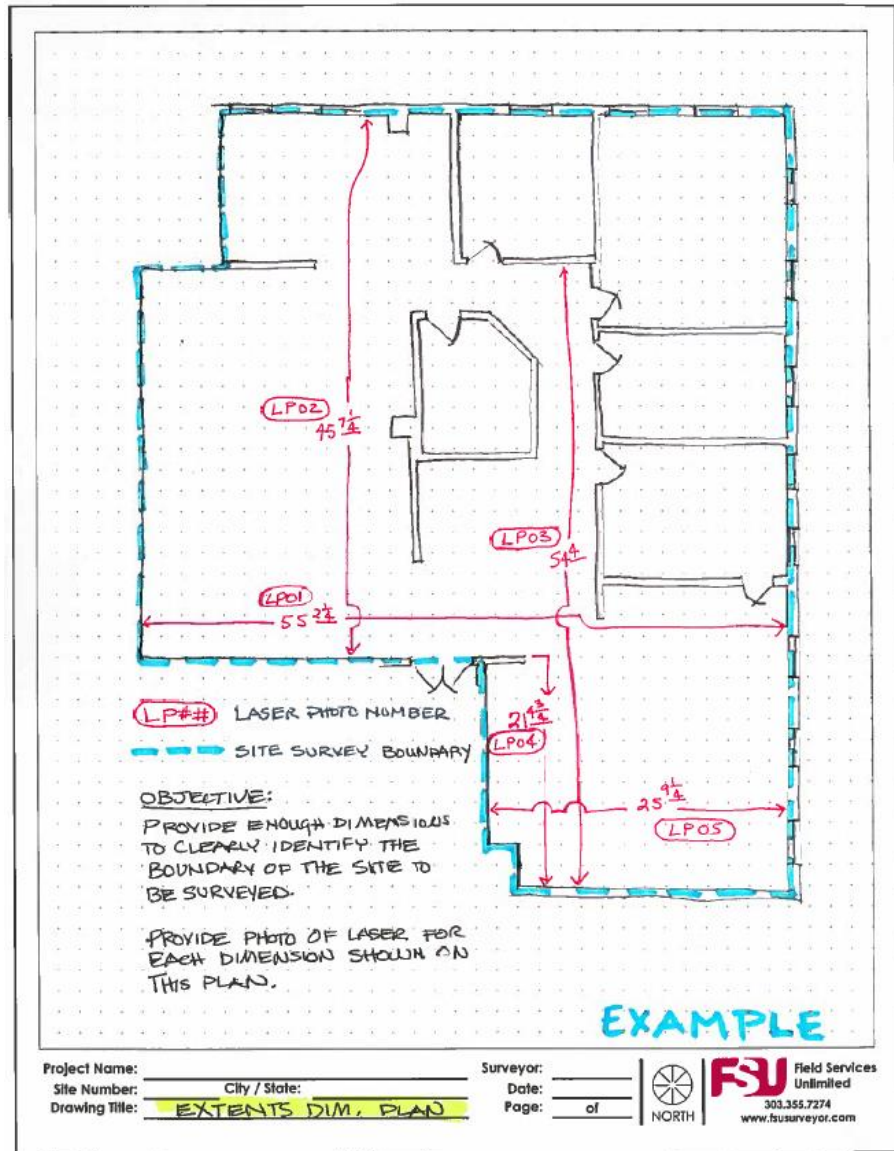 LP02
45 7 1/4
LP03
54 4
LP01
55 2 1/4
21 4 3/4
LP04
25 9 1/4
LP05
LP## LASER PHOTO NUMBER
SITE SURVEY BOUNDARY
OBJECTIVE:
PROVIDE ENOUGH DIMENSIONS
TO CLEARLY IDENTIFY THE
BOUNDARY OF THE SITE TO
BE SURVEYED.
PROVIDE PHOTO OF LASER FOR
EACH DIMENSION SHOWN ON
THIS PLAN.
EXAMPLE
Project Name:
Site Number: City / State:
Drawing Title: EXTENTS DIM. PLAN
Surveyor:
Date:
Page: of
NORTH
FSU Field Services
Unlimited
303.355.7274
www.fsusurveyor.com